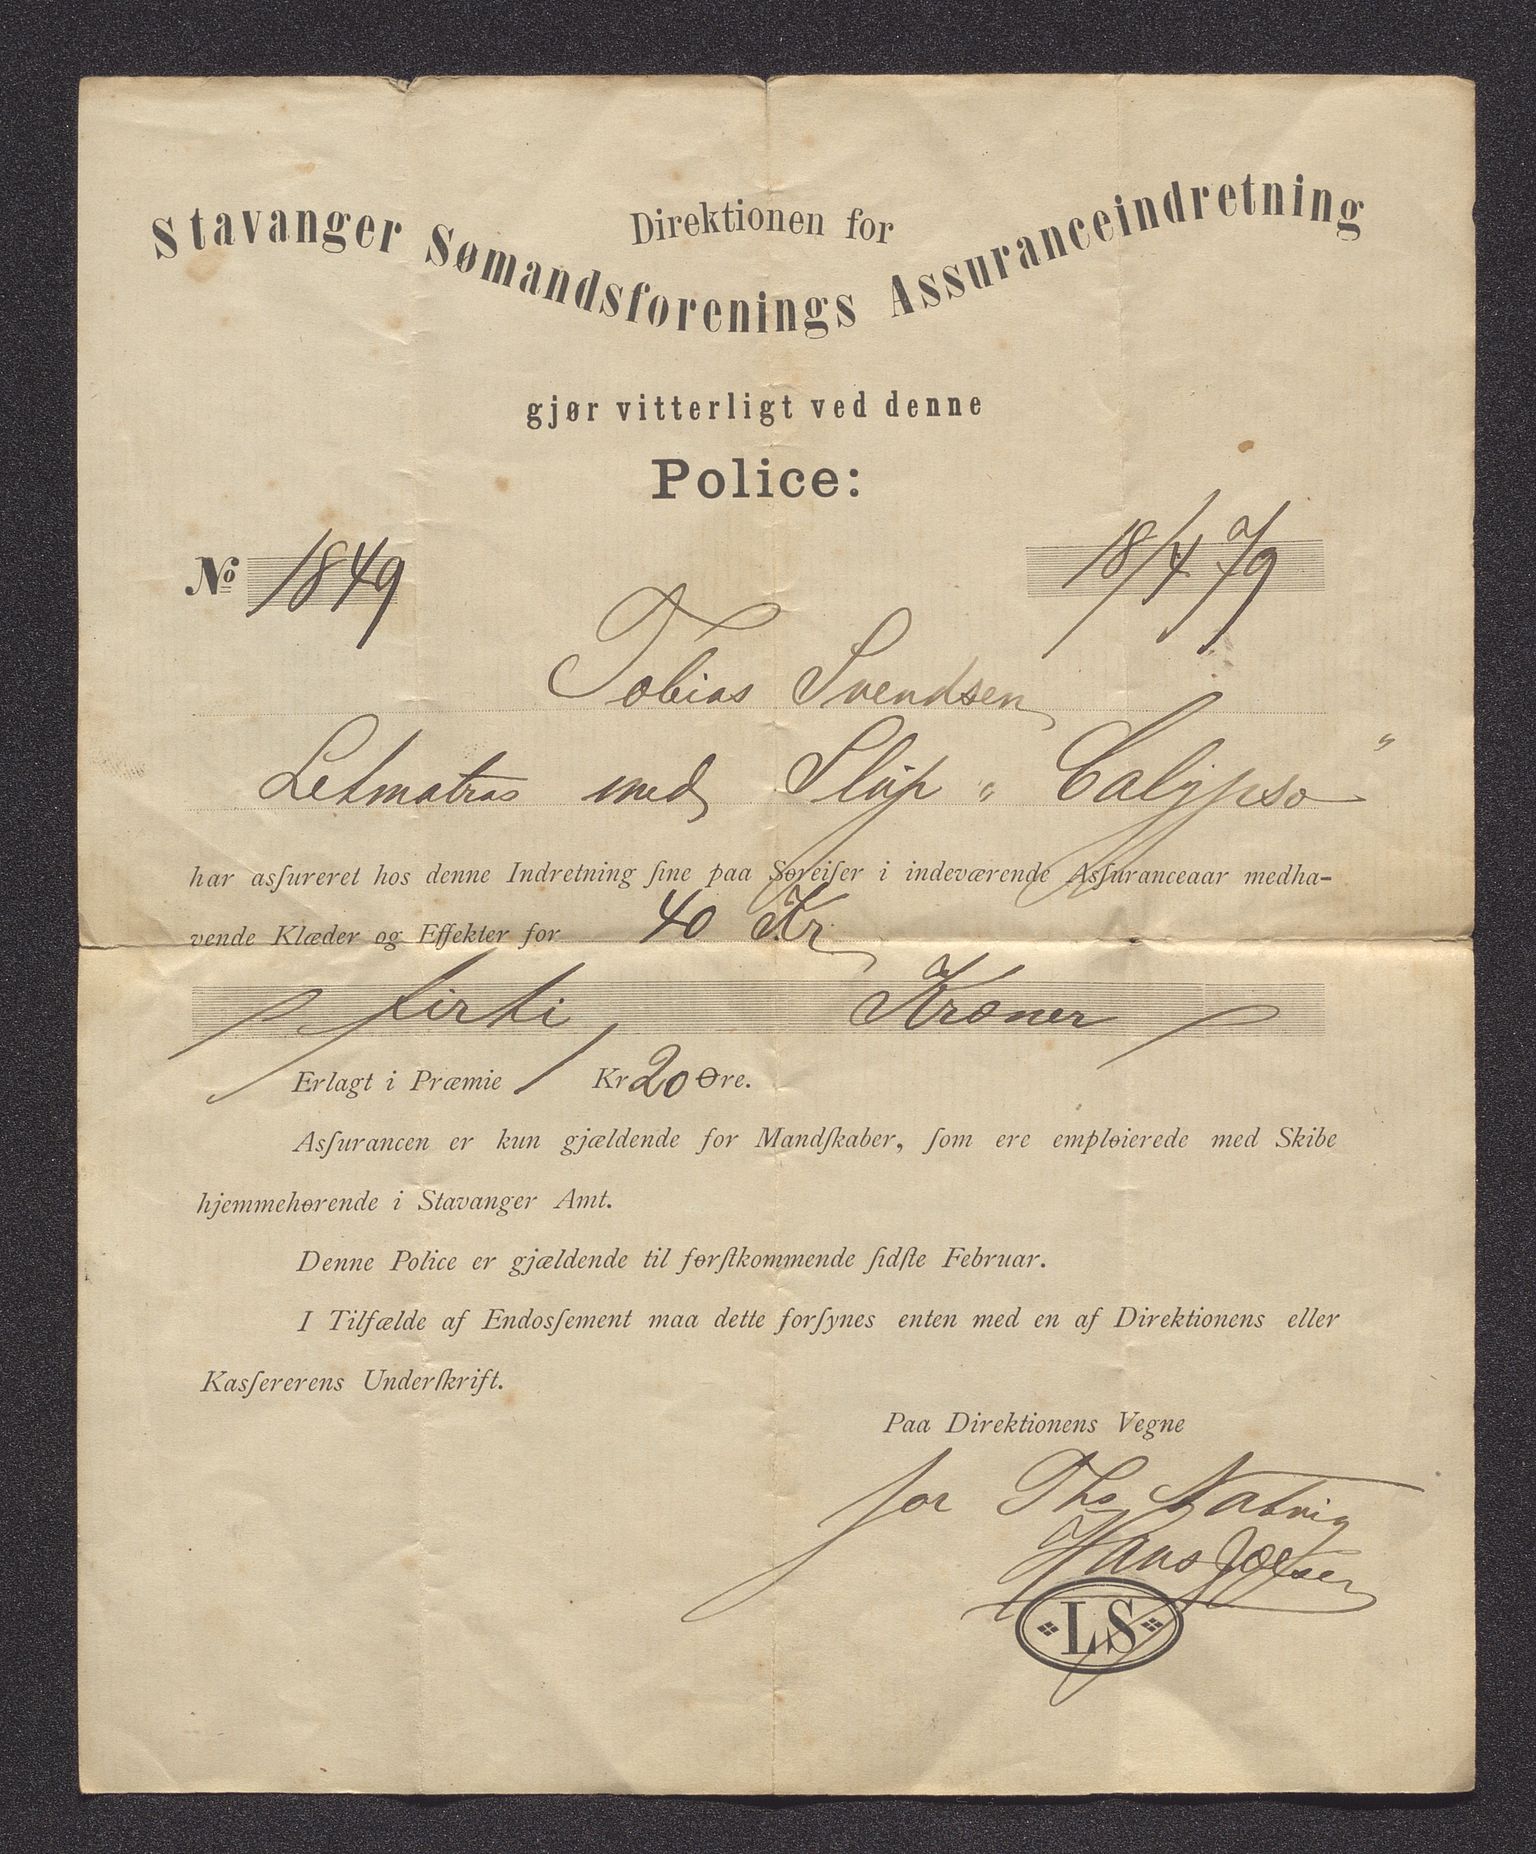 Direktionen for
Stavanger Sømandsforenings Assuranceindretning
gjør vitterligt ved denne
Police:
No 1849 18/4 79
Tobias Svendsen
Letmatros med Slup "Calypso"
har asſureret hos denne Indretning ſine paa Søreiſer i indeværende Asſuranceaar medha-
vende Klæder og Effekter for 40 Kr
firti Kroner
Erlagt i Præmie 1 Kr 20 Øre.
Asſurancen er kun gjældende for Mandſkaber, ſom ere empløierede med Skibe
hjemmehørende i Stavanger Amt.
Denne Police er gjældende til førſtkommende ſidſte Februar.
I Tilfælde af Endosſement maa dette forſynes enten med en af Direktionens eller
Kasſererens Underſkrift.
Paa Direktionens Vegne
for Ths Natvig
Hans
LS